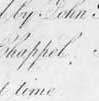 by John
Chappel.
t time